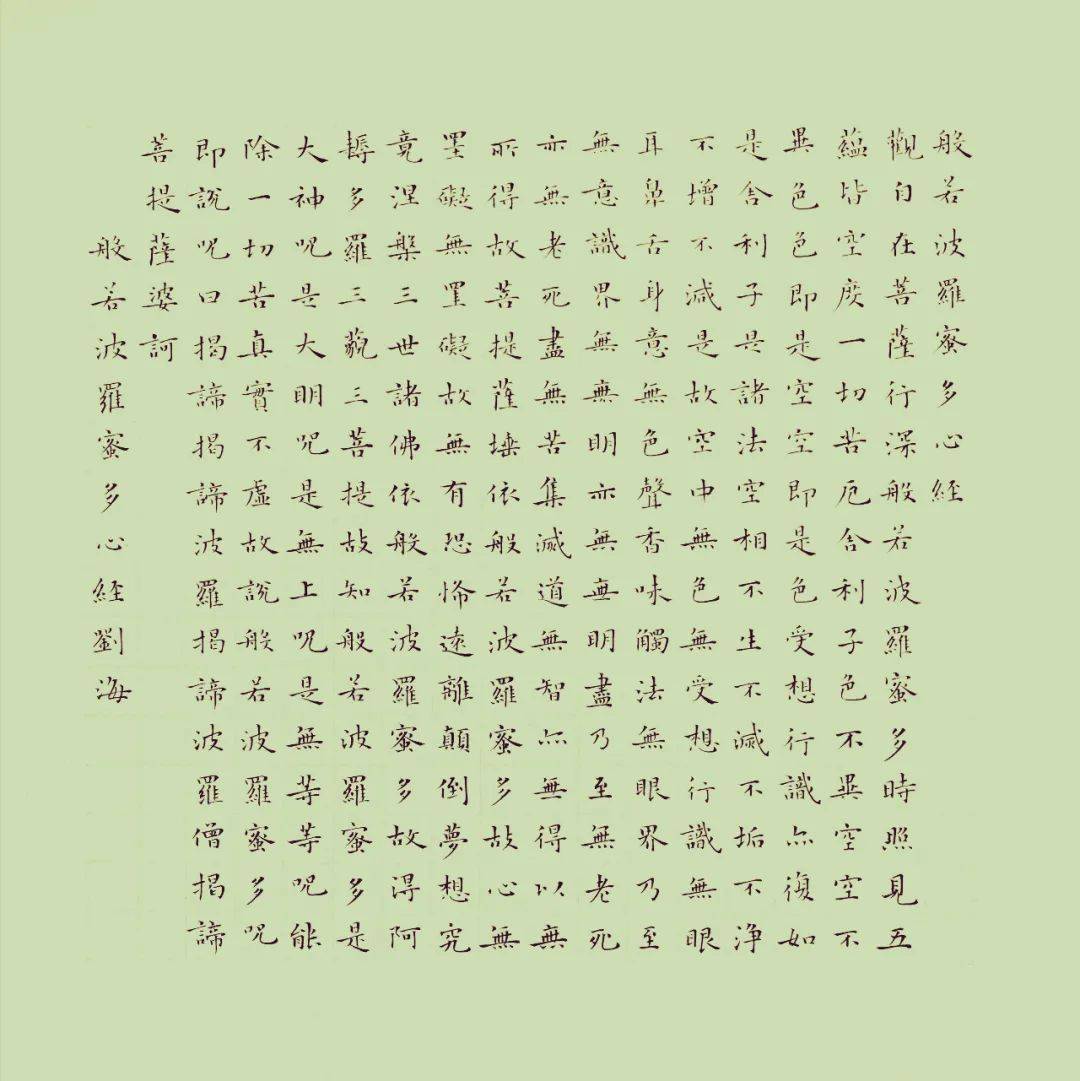 般若波羅蜜多心經
觀自在菩薩行深般若波羅蜜多時照見五
蘊皆空度一切苦厄舍利子色不異空空不
異色色即是空空即是色受想行識亦復如
是舍利子是諸法空相不生不滅不垢不淨
不增不減是故空中無色無受想行識無眼
耳鼻舌身意無色聲香味觸法無眼界乃至
無意識界無無明亦無無明盡乃至無老死
亦無老死盡無苦集滅道無智亦無得以無
所得故菩提薩埵依般若波羅蜜多故心無
罣礙無罣礙故無有恐怖遠離顛倒夢想究
竟涅槃三世諸佛依般若波羅蜜多故得阿
耨多羅三藐三菩提故知般若波羅蜜多是
大神呪是大明呪是無上呪是無等等呪能
除一切苦真實不虛故說般若波羅蜜多呪
即說呪曰揭諦揭諦波羅揭諦波羅僧揭諦
菩提薩婆訶
般若波羅蜜多心經劉海